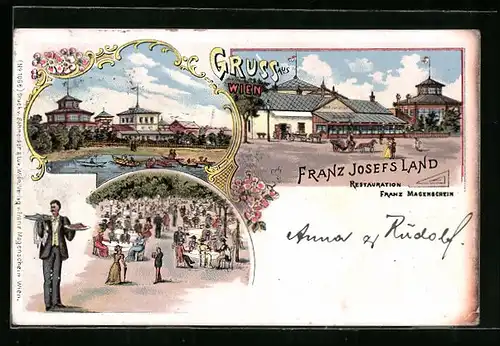 GRUSS AUS
WIEN
FRANZ JOSEFS LAND
RESTAURATION
FRANZ MAGENSCHEIN
Anna & Rudolf.